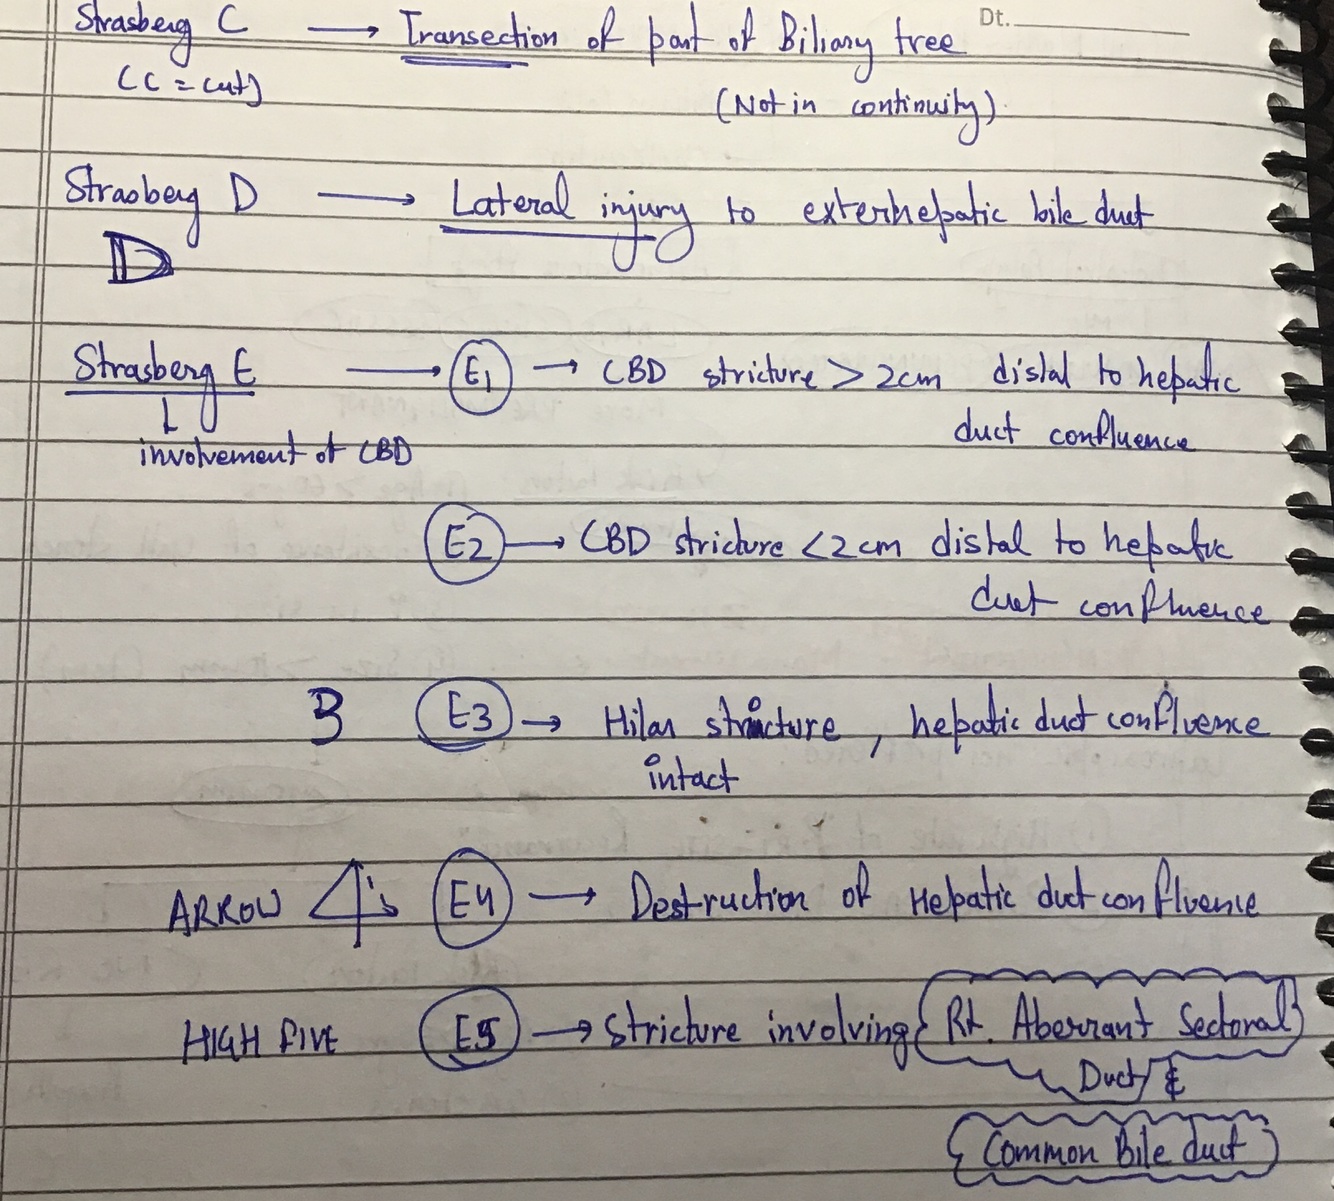 Strasberg C → Transection of part of Biliary tree Dt.
(C = cut)
(Not in continuity)
Strasberg D → Lateral injury to exterhepatic bile duct
D
Strasberg E → E1 → CBD stricture > 2cm distal to hepatic
duct confluence
involvement of CBD
E2 → CBD stricture < 2cm distal to hepatic
duct confluence
3 E3 → Hilar stricture, hepatic duct confluence
intact
ARROW 4's E4 → Destruction of Hepatic duct confluence
HIGH FIVE E5 → Stricture involving Rt. Aberrant Sectoral
Duct &
Common Bile duct